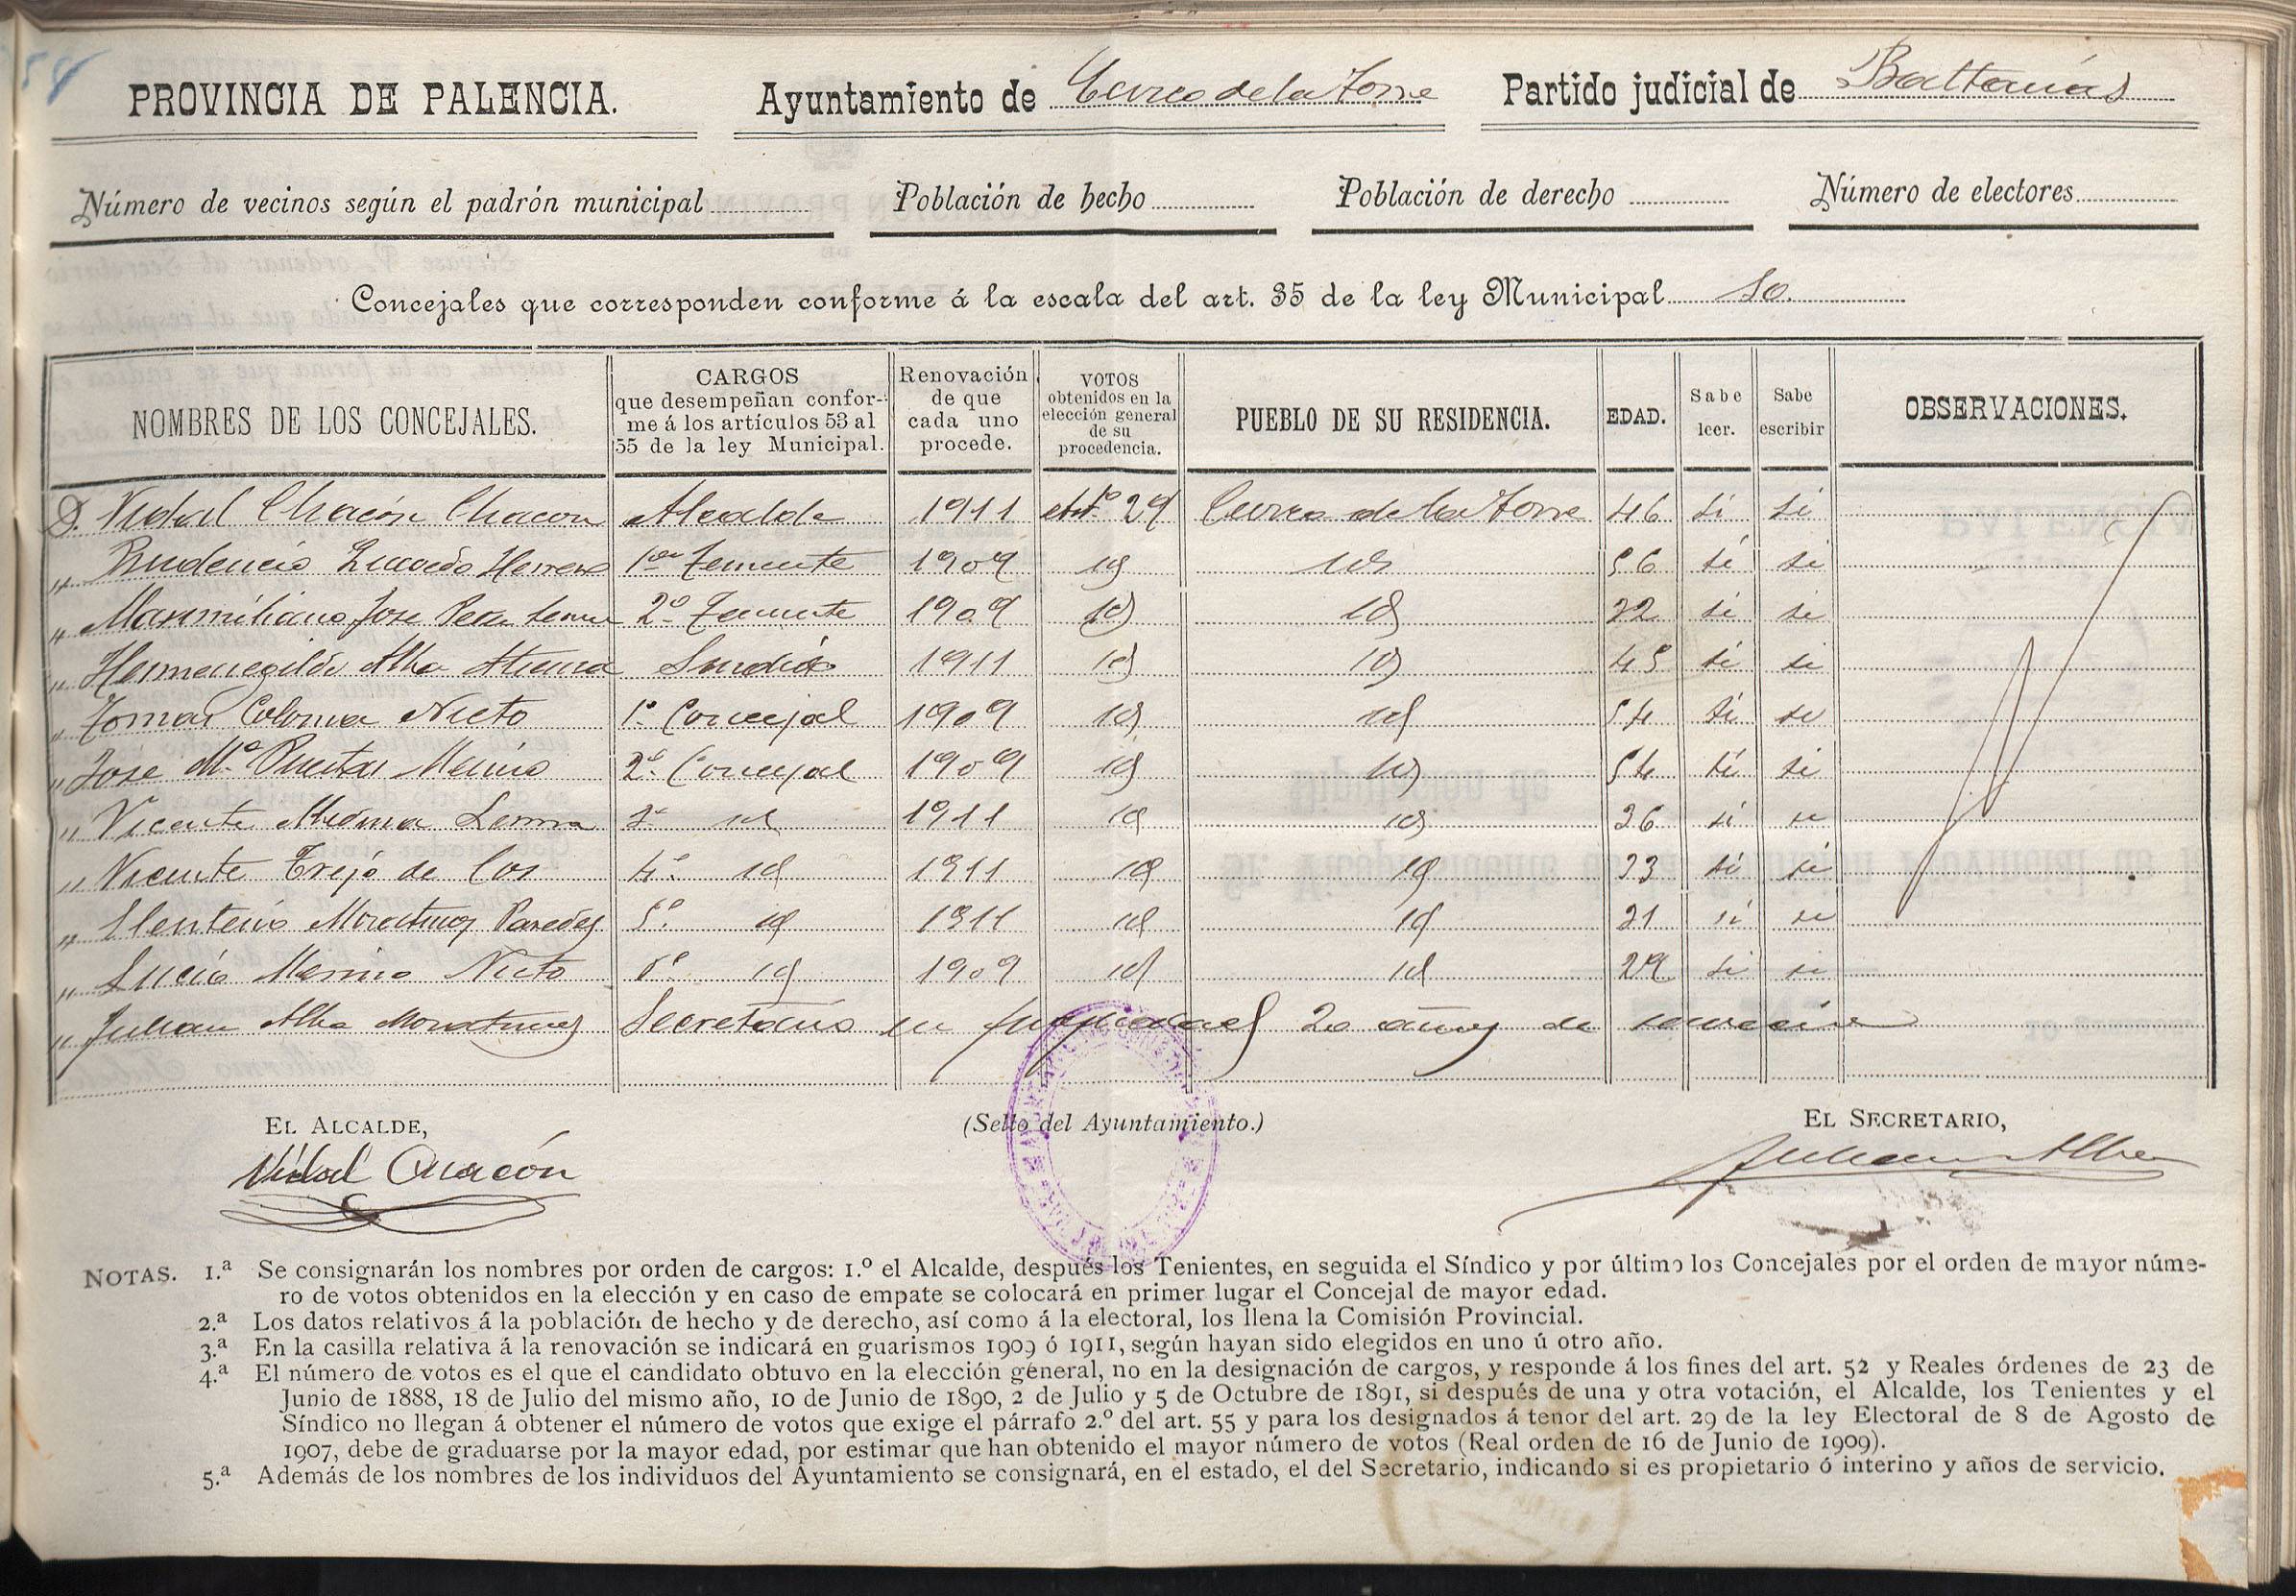 58
PROVINCIA DE PALENCIA. Ayuntamiento de Cevico de la Torre Partido judicial de Baltanás
Número de vecinos según el padrón municipal Población de hecho Población de derecho Número de electores
Concejales que corresponden conforme á la escala del art. 35 de la ley Municipal 10.
NOMBRES DE LOS CONCEJALES. CARGOS que desempeñan confor- me á los artículos 53 al 55 de la ley Municipal. Renovación de que cada uno procede. VOTOS obtenidos en la elección general de su procedencia. PUEBLO DE SU RESIDENCIA. EDAD. Sabe leer. Sabe escribir OBSERVACIONES.
D. Vidal Chacón Chacon Alcalde 1911 artº 29 Cevico de la Torre 46 si si
„ Prudencio Herrero 1er Teniente 1909 id id 56 si si
„ Maximiliano José 2º Teniente 1909 id id 32 si si
„ Hermenegildo Alba Atienza Sindico 1911 id id 45 si si
„ Tomas Coloma Nieto 1º Concejal 1909 id id 54 si si
„ José Mª Puertas Merino 2º Concejal 1909 id id 54 si si
„ Vicente Medina Lerma 3º id 1911 id id 36 si si
„ Vicente Trejo de Cos 4º id 1911 id id 33 si si
„ Moratinos Paredes 5º id 1911 id id 31 si si
„ Lucio Merino Nieto 6º id 1909 id id 29 si si
„ Julian Alba Moratinos Secretario en propiedad 20 años de servicio
EL ALCALDE, (Sello del Ayuntamiento.) EL SECRETARIO,
Vidal Chacón Julian Alba
NOTAS. 1.ª Se consignarán los nombres por orden de cargos: 1.º el Alcalde, después los Tenientes, en seguida el Síndico y por último los Concejales por el orden de mayor núme-
ro de votos obtenidos en la elección y en caso de empate se colocará en primer lugar el Concejal de mayor edad.
2.ª Los datos relativos á la población de hecho y de derecho, así como á la electoral, los llena la Comisión Provincial.
3.ª En la casilla relativa á la renovación se indicará en guarismos 1909 ó 1911, según hayan sido elegidos en uno ú otro año.
4.ª El número de votos es el que el candidato obtuvo en la elección general, no en la designación de cargos, y responde á los fines del art. 52 y Reales órdenes de 23 de
Junio de 1888, 18 de Julio del mismo año, 10 de Junio de 1890, 2 de Julio y 5 de Octubre de 1891, si después de una y otra votación, el Alcalde, los Tenientes y el
Síndico no llegan á obtener el número de votos que exige el párrafo 2.º del art. 55 y para los designados á tenor del art. 29 de la ley Electoral de 8 de Agosto de
1907, debe de graduarse por la mayor edad, por estimar que han obtenido el mayor número de votos (Real orden de 16 de Junio de 1909).
5.ª Además de los nombres de los individuos del Ayuntamiento se consignará, en el estado, el del Secretario, indicando si es propietario ó interino y años de servicio.